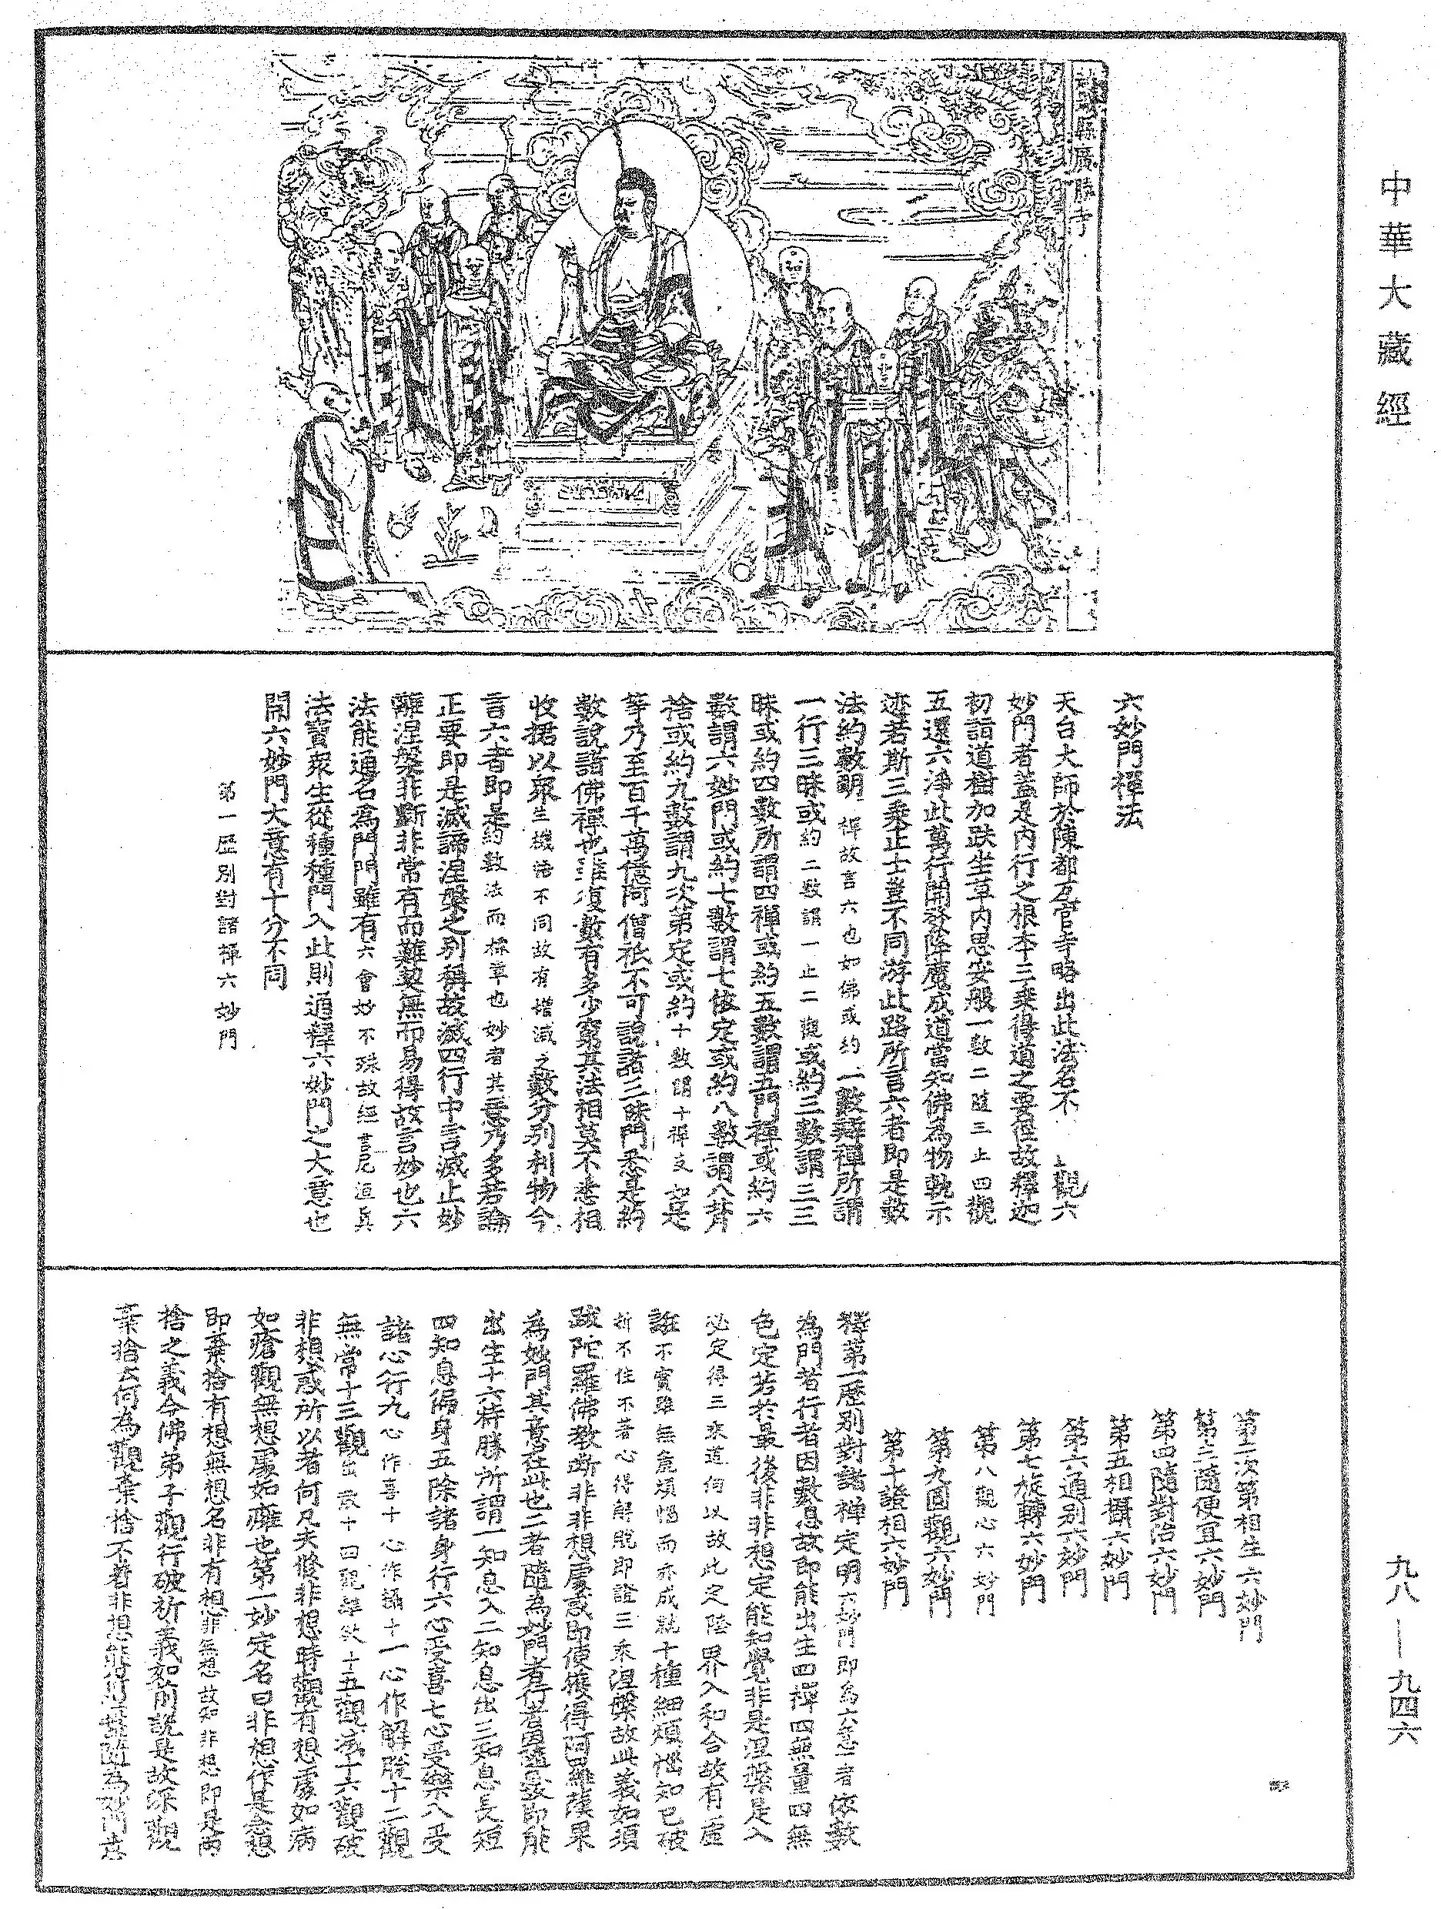 中華大藏經
廣勝寺
六妙門禪法
天台大師於陳都瓦官寺略出此法名不 觀六
妙門者蓋是內行之根本三乘得道之要徑故釋迦
初詣道樹加趺坐草內思安般一數二隨三止四觀
五還六淨此萬行開發降魔成道當知佛為物軌示
迹若斯三乘正士豈不同游此路所言六者即是數
法約數明禪故言六也如佛或約一數辯禪所謂
一行三昧或約二數謂一止二觀或約三數謂三三
昧或約四數所謂四禪或約五數謂五門禪或約六
數謂六妙門或約七數謂七依定或約八數謂八背
捨或約九數謂九次第定或約十數明十禪支如是
等乃至百千萬億阿僧祇不可說諸三昧門悉是約
數說諸佛禪也雖復數有多少窮其法相莫不悉相
收捃以眾生機悟不同故有增減之數分別利物今
言六者即是約數法而標章也妙者其意乃多若論
正要即是滅諦涅槃之別稱故滅四行中言滅止妙
離涅槃非斷非常有而難契無而易得故言妙也六
法能通名為門門雖有六會妙不殊故經言尼洹真
法寶眾生從種種門入此則通釋六妙門之大意也
開六妙門大意有十分不同
第一歷別對諸禪六妙門
第二次第相生六妙門
第三隨便宜六妙門
第四隨對治六妙門
第五相攝六妙門
第六通別六妙門
第七旋轉六妙門
第八觀心六妙門
第九圓觀六妙門
第十證相六妙門
釋第一歷別對諸禪定明六妙門即為六意一者依數
為門者行者因數息故即能出生四禪四無量四無
色定若於最後非非想定能知覺非是涅槃是人
必定得三乘道何以故此定陰界入和合故有虛
誑不實雖無麁煩惱而亦成就十種細煩惱知已破
折不住不著心得解脫即證三乘涅槃故此義如須
跋陀羅佛教斷非非想處惑即便獲得阿羅漢果
為妙門其意在此也二者隨為妙門者行者因隨息故即能
出生十六特勝所謂一知息入二知息出三知息長短
四知息徧身五除諸身行六心受喜七心受樂八受
諸心行九心作喜十心作攝十一心作解脫十二觀
無常十三觀出散十四觀離欲十五觀滅十六觀棄
非想惑所以者何凡夫修非想時觀有想處如病
如瘡觀無想處如癰也第一妙定名曰非想作是念想
即棄捨有想無想名非有想非無想故知非想即是兩
捨之義今佛弟子觀行破析義如前說是故深觀
棄捨云何為觀棄捨不著非想能得涅槃隨為妙門意
九八—九四六